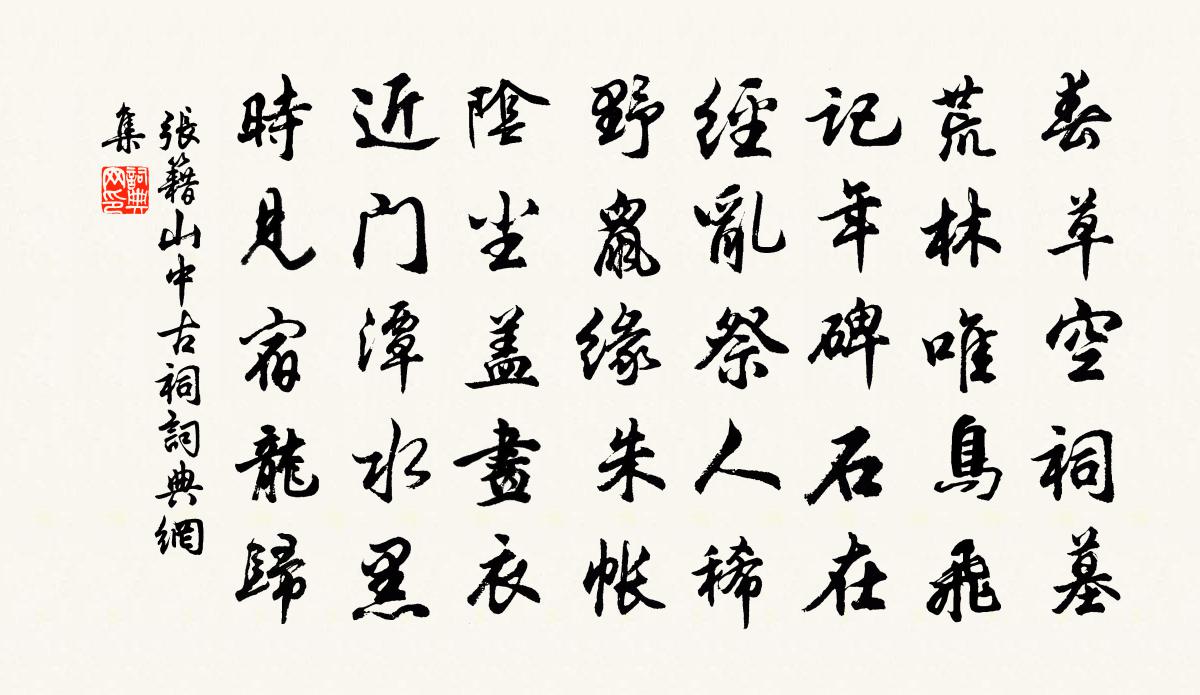 春草空祠墓
荒林唯鳥飛
記年碑石在
經亂祭人稀
野鼠緣朱帳
陰尘盖畫衣
近門潭水黑
時見宿龍歸
張籍山中古祠詞典網
集
詞典
网印